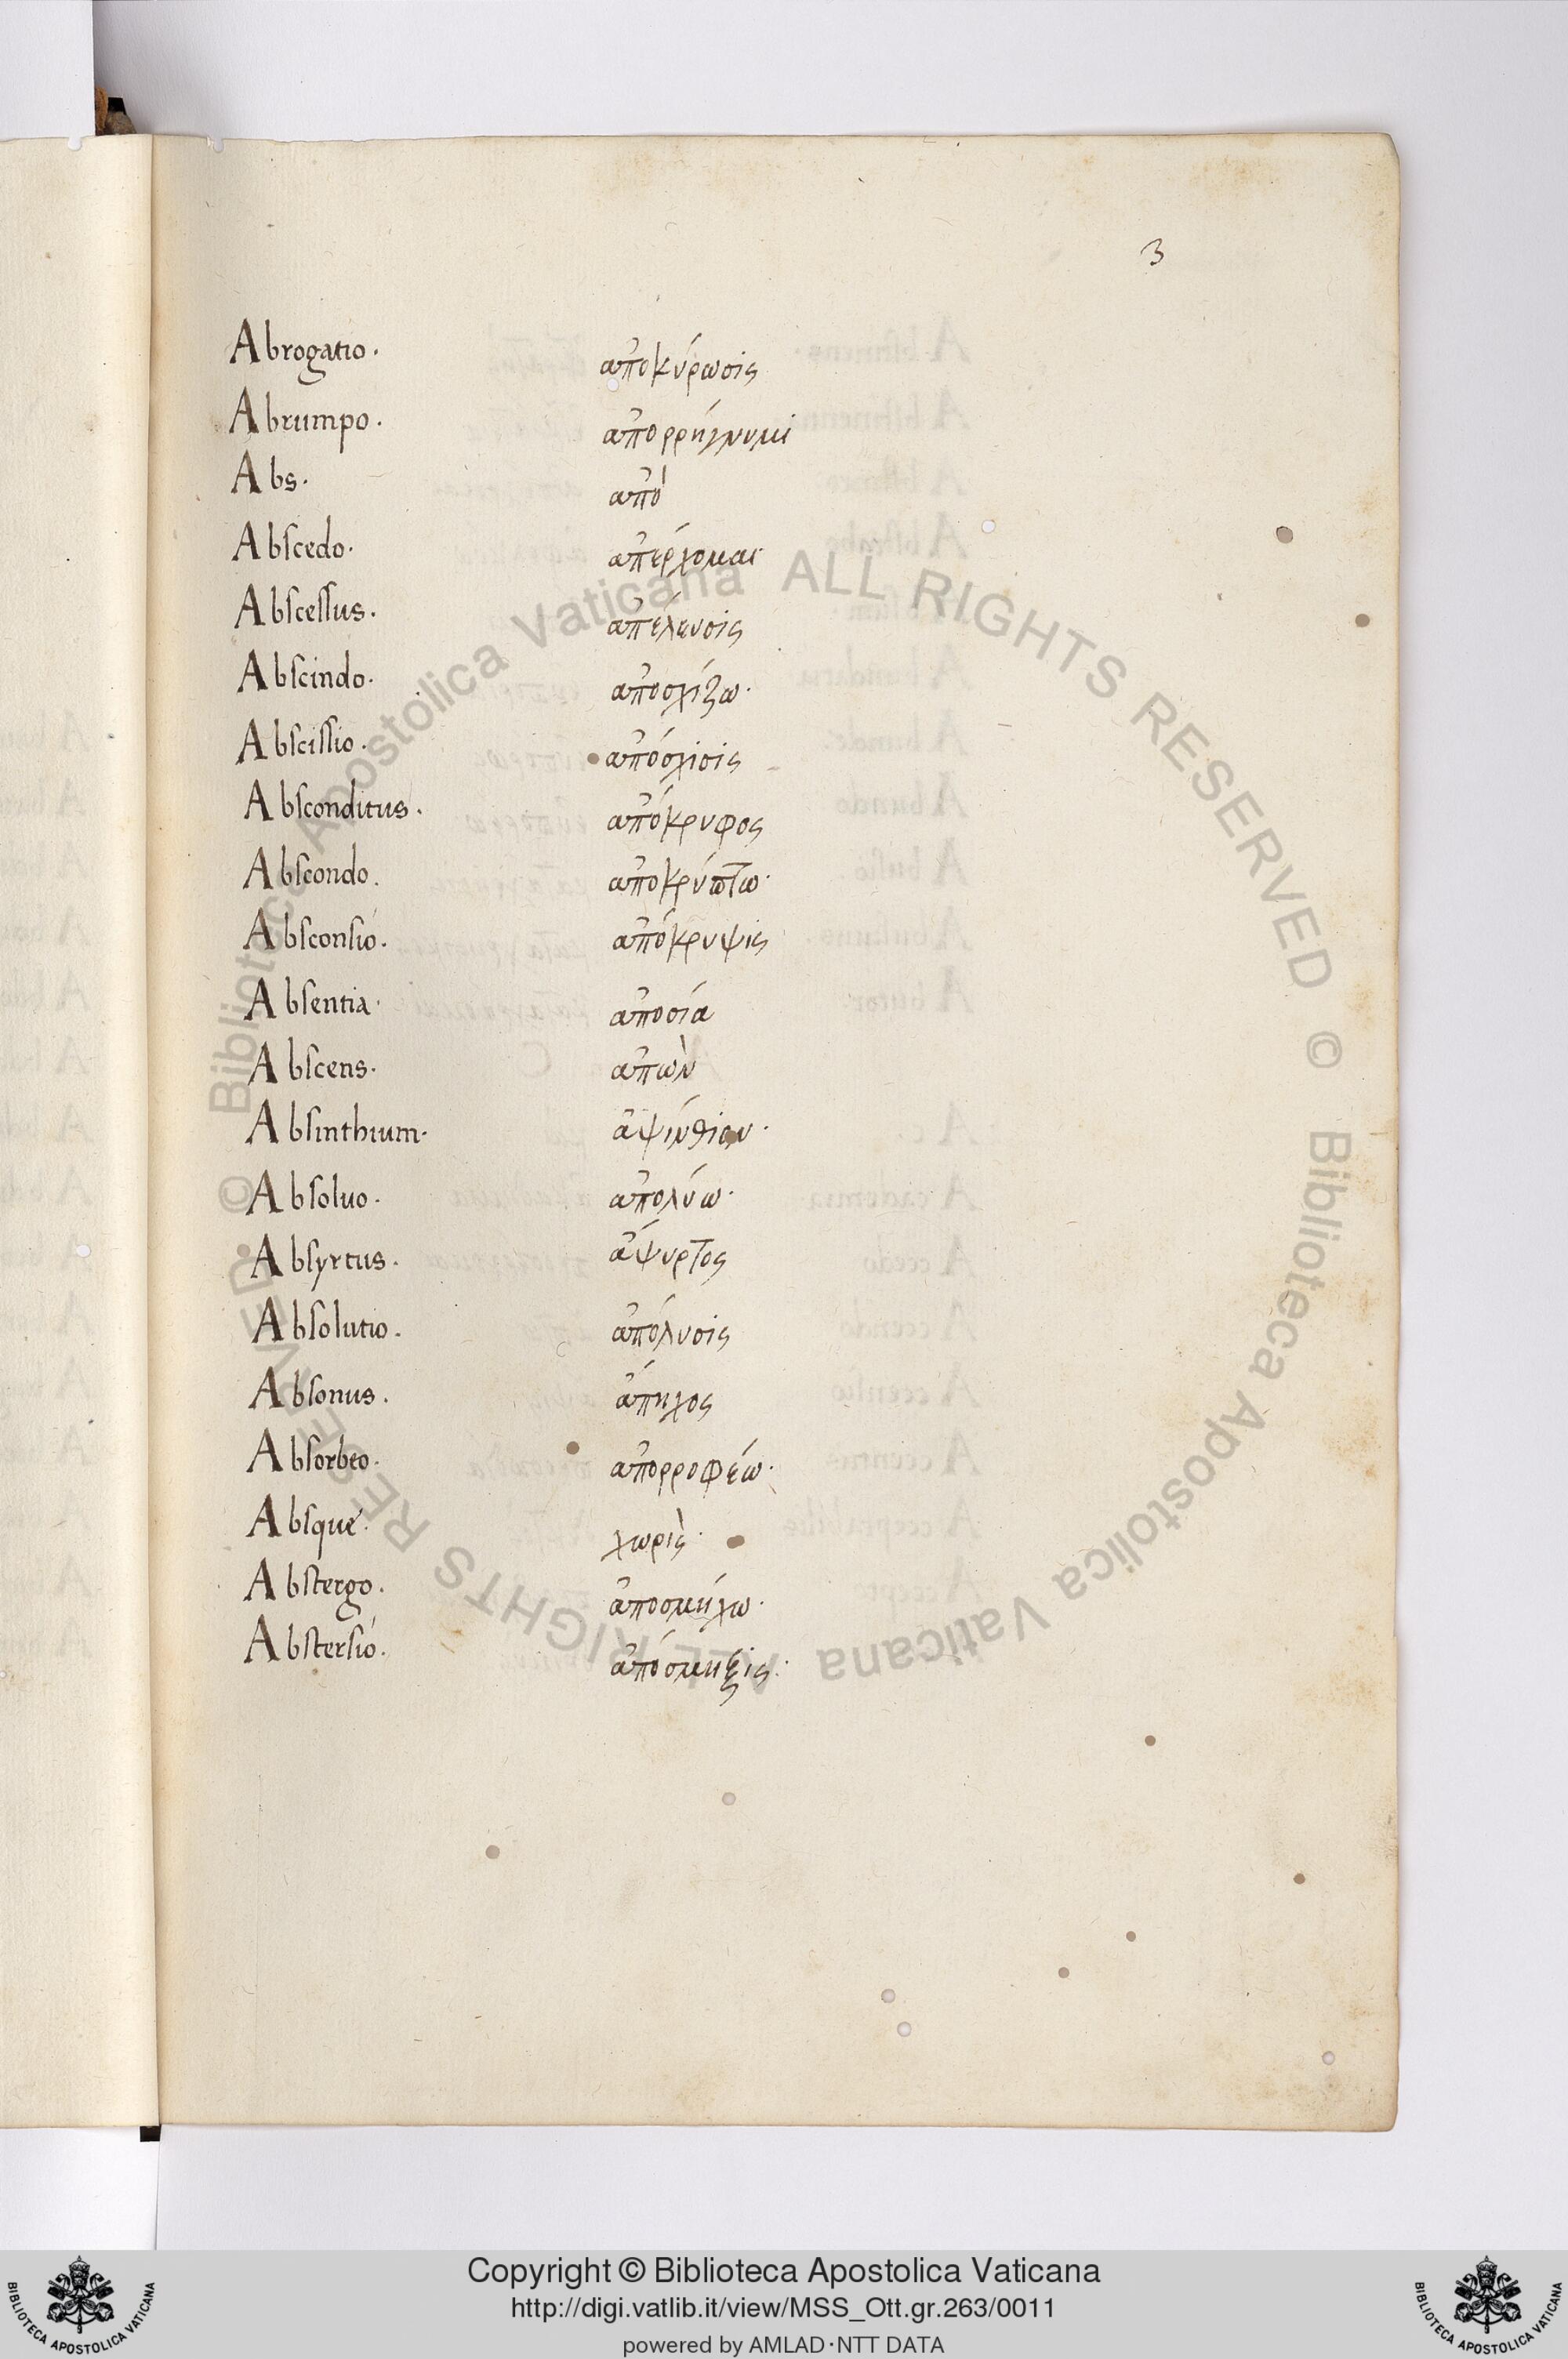 3
Abrogatio. ἀποκύρωσις
Abrumpo. ἀπορρήγνυμι
Abs. ἀπὸ
Abscedo. ἀπέρχομαι
Abscessus. ἀπέλευσις
Abscindo. ἀποσχίζω.
Abscissio. ἀπόσχισις
Absconditus. ἀπόκρυφος
Abscondo. ἀποκρύπτω.
Absconsio. ἀπόκρυψις
Absentia. ἀποσία
Abscens. ἀπὼν
Absinthium. ἀψίνθιον.
Absoluo. ἀπολύω.
Absyrtus. ἄψυρτος
Absolutio. ἀπόλυσις
Absonus. ἄπηχος
Absorbeo. ἀπορροφέω.
Absque. χωρὶς.
Abstergo. ἀποσμήχω.
Abstersio. ἀπόσμηξις.
© Biblioteca Apostolica Vaticana ALL RIGHTS RESERVED © Biblioteca Apostolica Vaticana ALL RIGHTS RESERVED
Copyright © Biblioteca Apostolica Vaticana
http://digi.vatlib.it/view/MSS_Ott.gr.263/0011
powered by AMLAD·NTT DATA
BIBLIOTECA APOSTOLICA VATICANA
BIBLIOTECA APOSTOLICA VATICANA